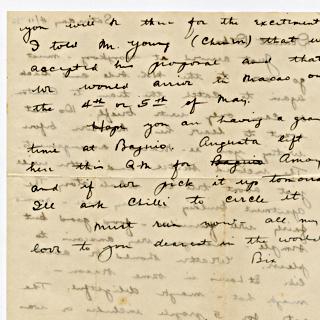 you will be there for the excitement
I told Mr. Young (Churn) that w
accepted his proposal and that
we would arrive in Macao on
the 4th or 5th of May.
Hope you are having a gran
time at Baguio. Augusta left
here this A.M. for Baguio Amoy
and if we pick it up tomorro
I'll ask Chilli to circle it
Must run now all my
love to you dearest in the world
Bix